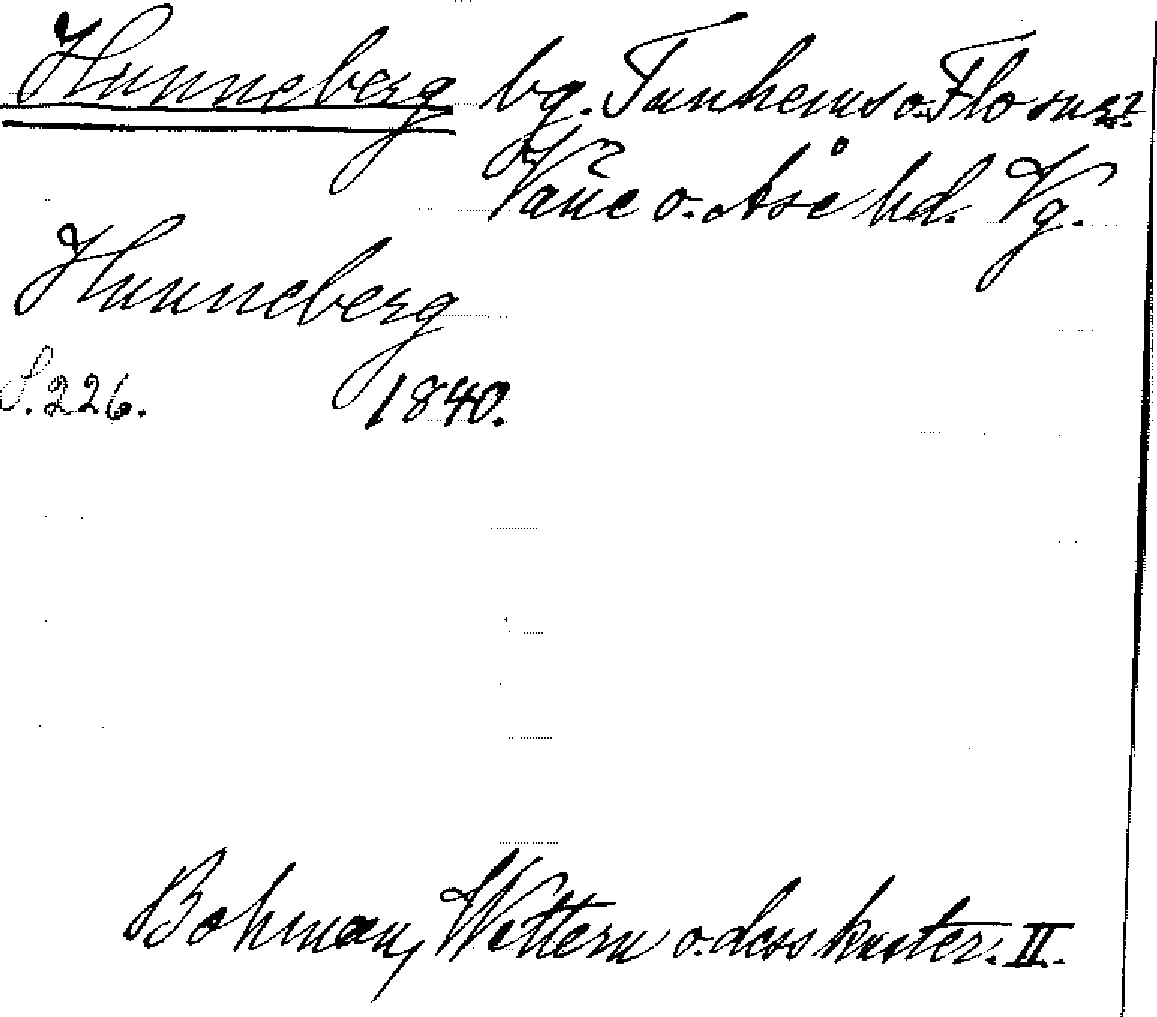 Hunneberg bg. Tunhems o. Flo snr?
Väne o. Åse hd. Vg.
Hunneberg
S. 226. 1840.
Bohman, Wettern o. dess kuster. II.